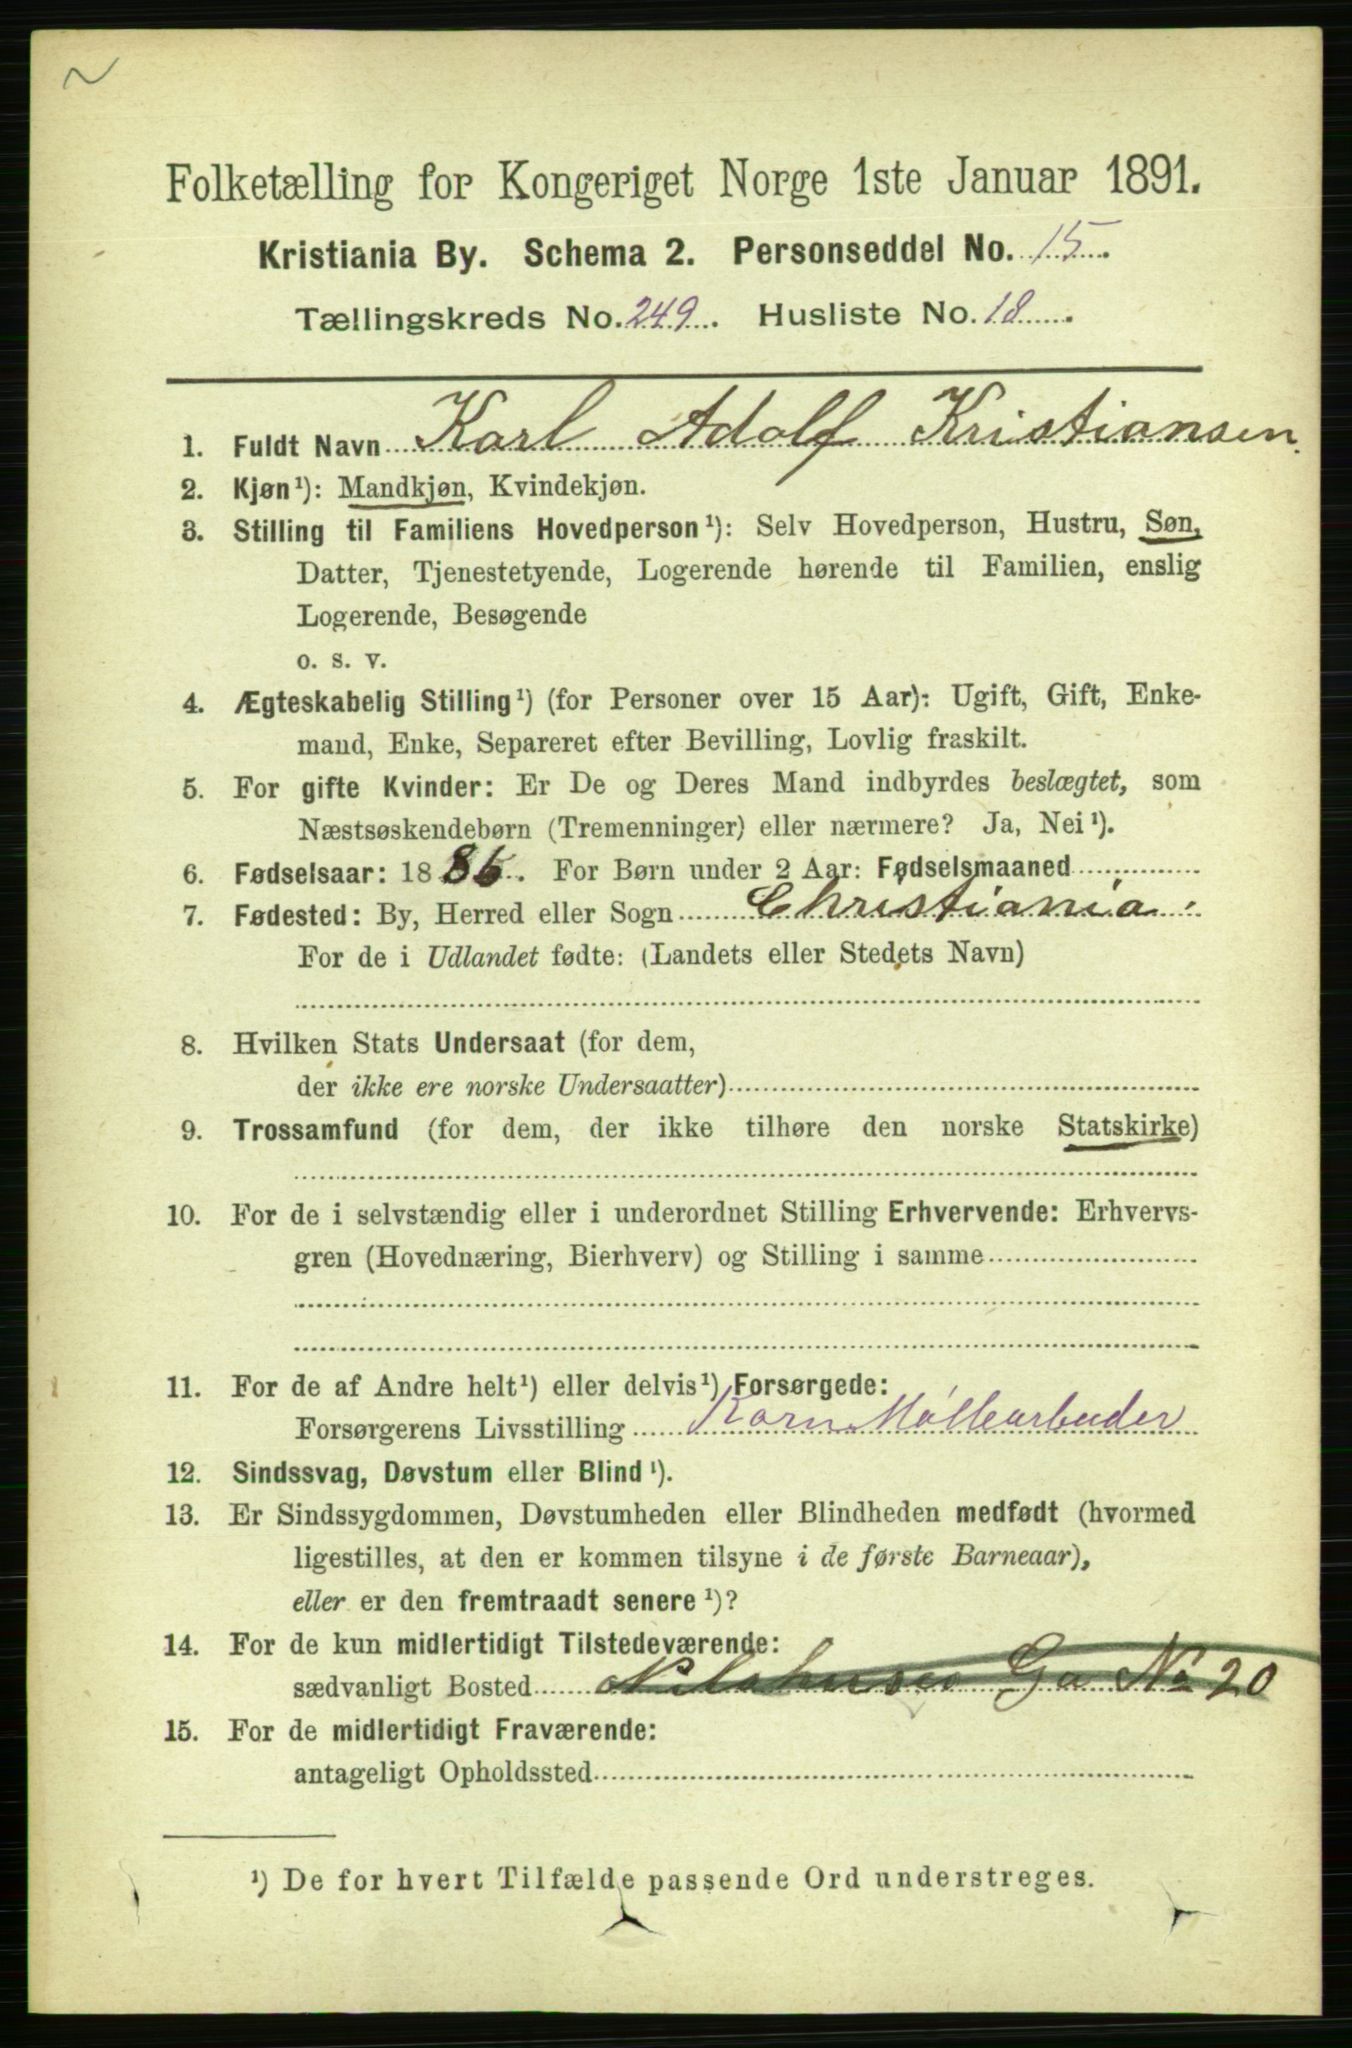 Folketælling for Kongeriget Norge 1ste Januar 1891.
Kristiania By. Schema 2. Personseddel No. 15.
Tællingskreds No. 249. Husliste No. 18.
1. Fuldt Navn Karl Adolf Kristiansen.
2. Kjøn¹): Mandkjøn, Kvindekjøn.
3. Stilling til Familiens Hovedperson¹): Selv Hovedperson, Hustru, Søn,
Datter, Tjenestetyende, Logerende hørende til Familien, enslig
Logerende, Besøgende
o. s. v.
4. Ægteskabelig Stilling¹) (for Personer over 15 Aar): Ugift, Gift, Enke-
mand, Enke, Separeret efter Bevilling, Lovlig fraskilt.
5. For gifte Kvinder: Er De og Deres Mand indbyrdes beslægtet, som
Næstsøskendebørn (Tremenninger) eller nærmere? Ja, Nei¹).
6. Fødselsaar: 1886. For Børn under 2 Aar: Fødselsmaaned
7. Fødested: By, Herred eller Sogn Christiania.
For de i Udlandet fødte: (Landets eller Stedets Navn)
8. Hvilken Stats Undersaat (for dem,
der ikke ere norske Undersaatter)
9. Trossamfund (for dem, der ikke tilhøre den norske Statskirke)
10. For de i selvstændig eller i underordnet Stilling Erhvervende: Erhvervs-
gren (Hovednæring, Bierhverv) og Stilling i samme
11. For de af Andre helt¹) eller delvis¹) Forsørgede:
Forsørgerens Livsstilling Korn Møllearbeider
12. Sindssvag, Døvstum eller Blind¹).
13. Er Sindssygdommen, Døvstumheden eller Blindheden medfødt (hvormed
ligestilles, at den er kommen tilsyne i de første Barneaar),
eller er den fremtraadt senere¹)?
14. For de kun midlertidigt Tilstedeværende:
sædvanligt Bosted Ga No 20
15. For de midlertidigt Fraværende:
antageligt Opholdssted
¹) De for hvert Tilfælde passende Ord understreges.